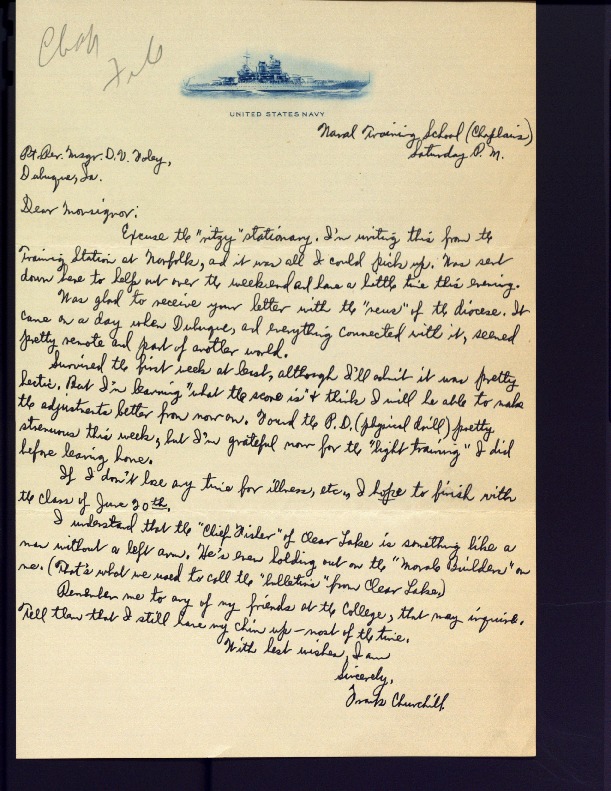 Chap
File
UNITED STATES NAVY
Naval Training School (Chaplains)
Saturday P. M.
Rt. Rev. Msgr. D. V. Foley,
Dubuque, Ia.
Dear Monsignor:
Excuse the "ritzy" stationary. I'm writing this from the
Training Station at Norfolk, and it was all I could pick up. Was sent
down here to help out over the weekend and have a little time this evening.
Was glad to receive your letter with the "news" of the diocese. It
came on a day when Dubuque, and everything connected with it, seemed
pretty remote and part of another world.
Survived the first week at least, although I'll admit it was pretty
hectic. But I'm learning "what the score is" & think I will be able to make
the adjustments better from now on. Found the P.D. (physical drill) pretty
strenuous this week, but I'm grateful now for the "light training" I did
before leaving home.
If I don't lose any time for illness, etc., I hope to finish with
the class of June 20th.
I understand that the "Chief Fisher" of Clear Lake is something like a
man without a left arm. He's even holding out on the "Morale Builders" on
me. (That's what we used to call the "bulletins" from Clear Lake)
Remember me to any of my friends at the College, that may inquire.
Tell them that I still have my chin up – most of the time.
With best wishes, I am
Sincerely,
Frank Churchill